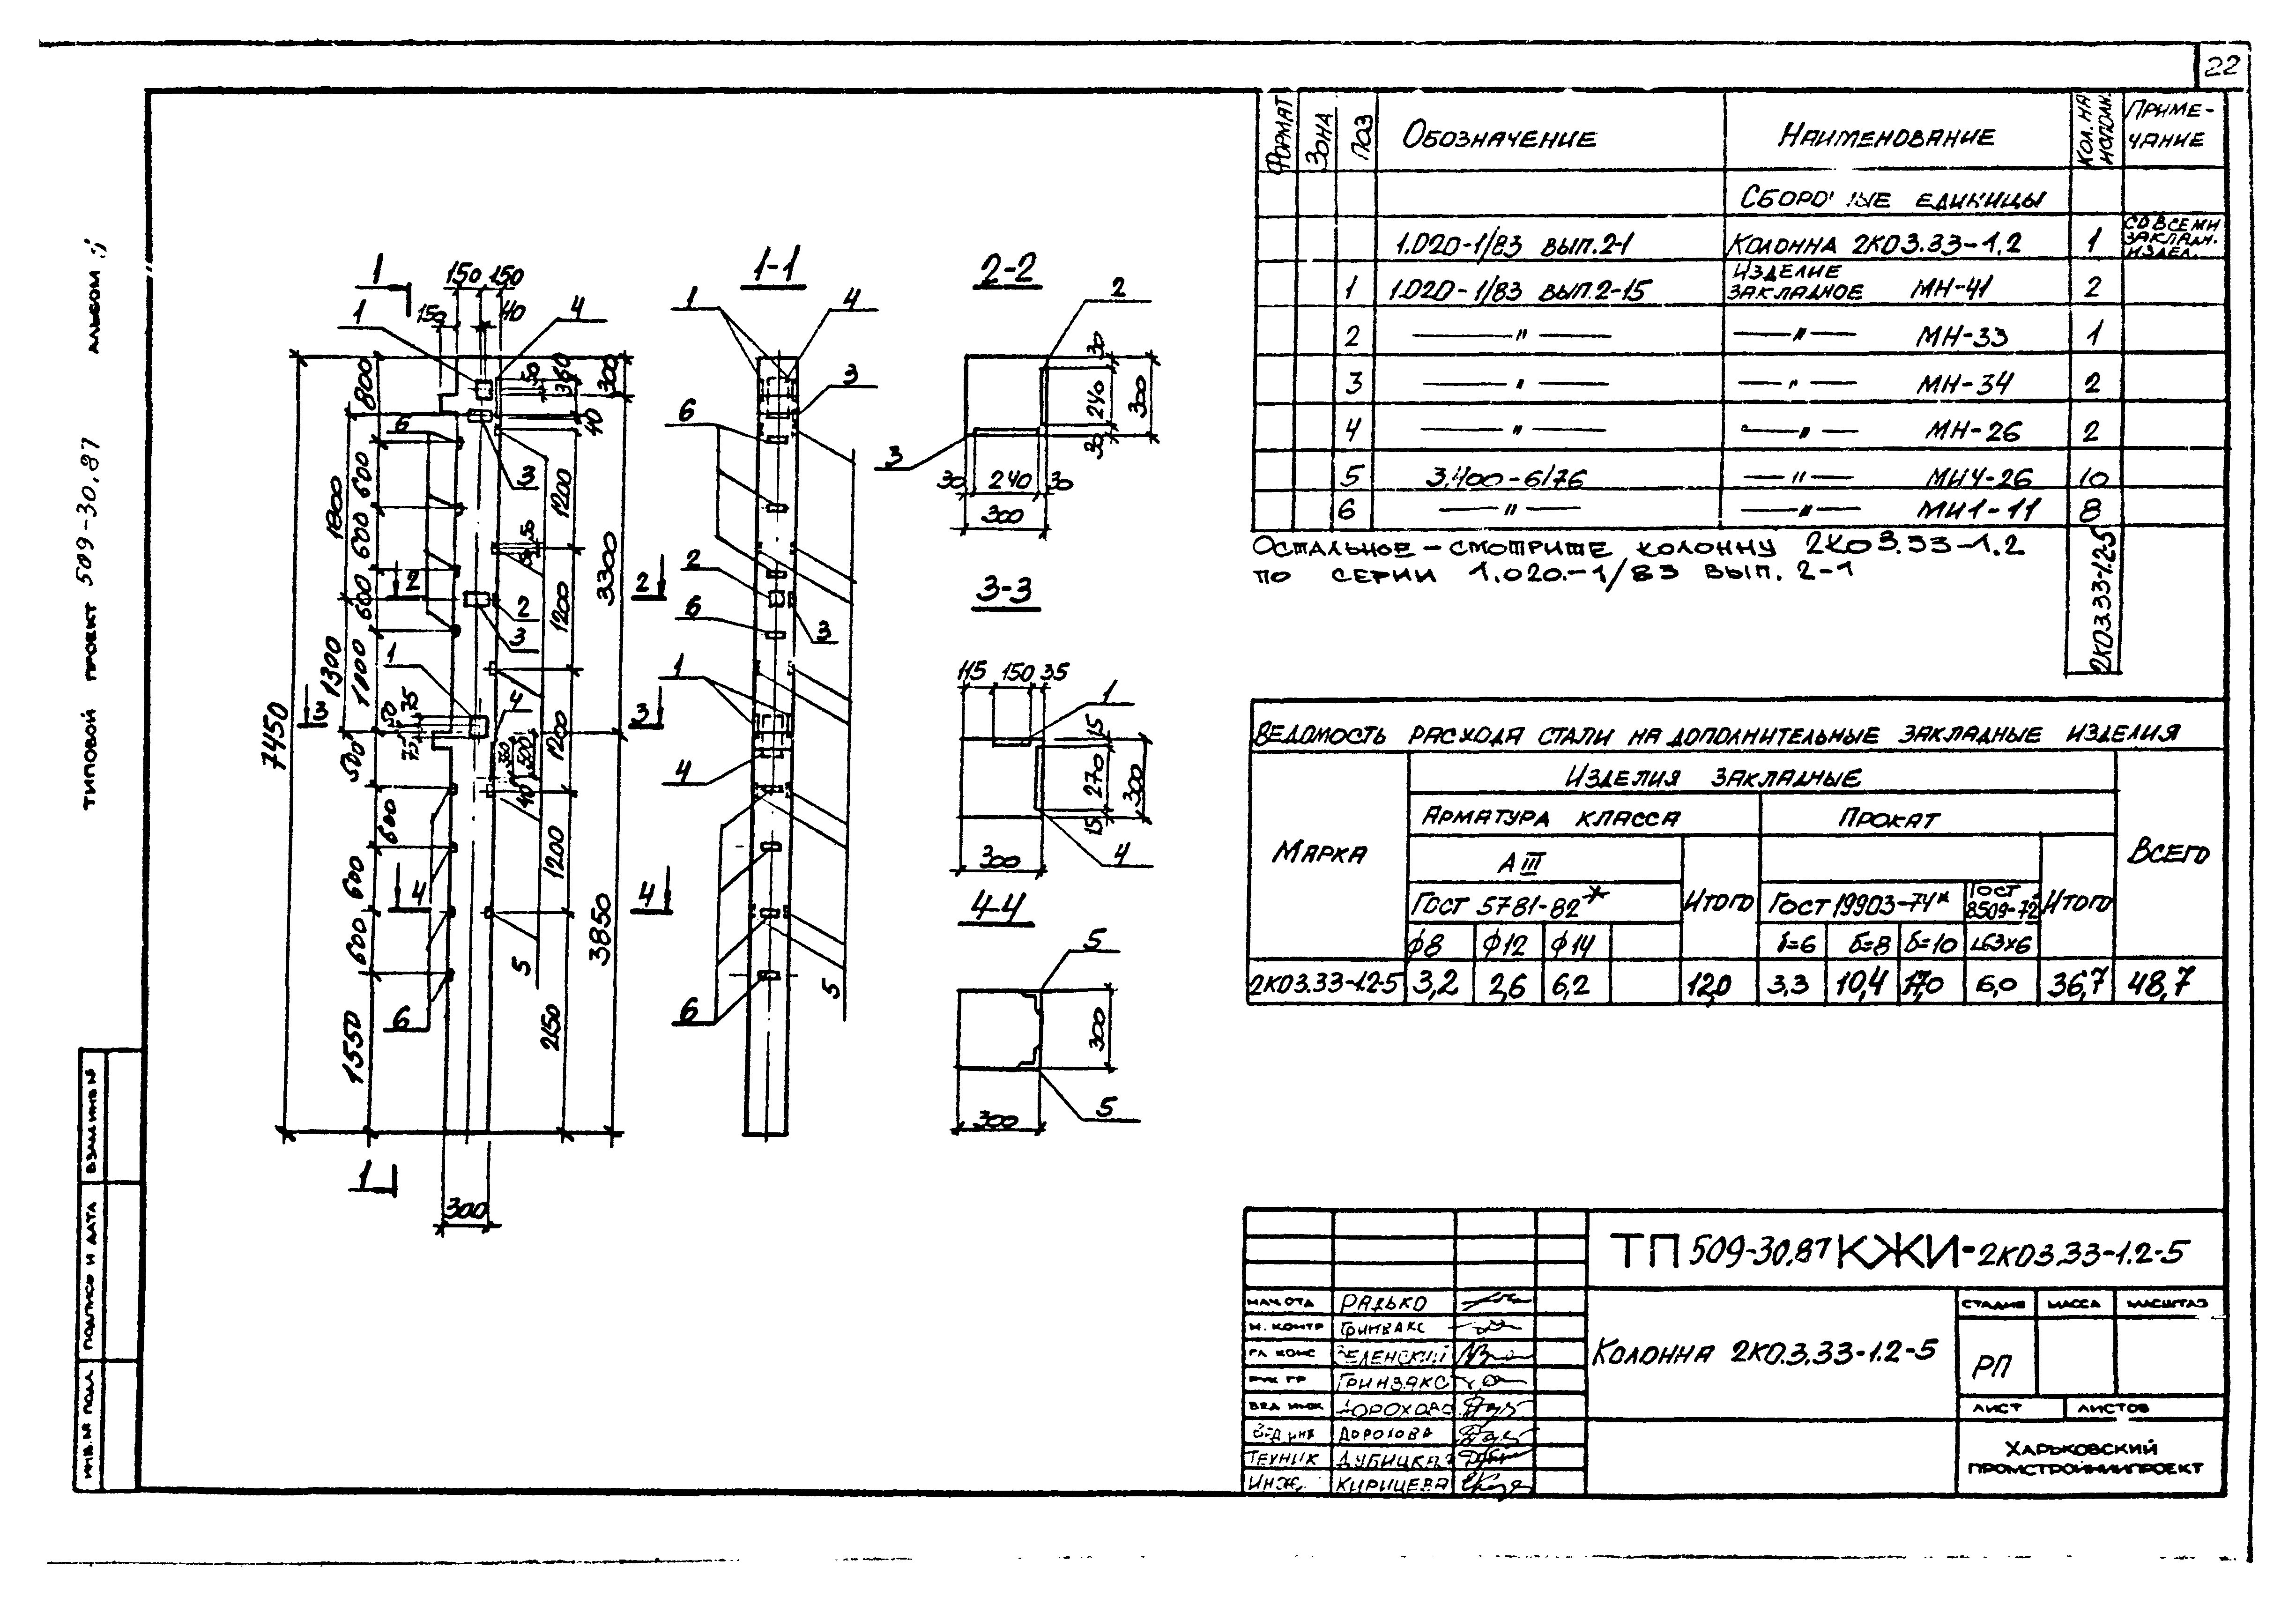 22
ТИПОВОЙ ПРОЕКТ 509-30.87 АЛЬБОМ
ИНВ.№ ПОДЛ. ПОДПИСЬ И ДАТА ВЗАМ ИНВ №
1 150 150
1 150 40 4
800 50 360 300
6 40
3
600 1200
1800 600 50
2 600 2 3300 2
1200 3
1300 1
1100
3 50 75 75 4 3
7450 500 350 500 1200
40
600
600 4 1200 4
600 3850
5
6
1550 2150
1
300
1-1
1 4
3
6
2
6
3
1
4
6
5
2-2
2
30 240 30 300
3
30 240 30
300
3-3
115 150 35
1
15 270 15 300
4
300
4-4
5
300
5
300
ФОРМАТ ЗОНА ПОЗ ОБОЗНАЧЕНИЕ НАИМЕНОВАНИЕ КОЛ. НА ИСПОЛН. ПРИМЕ-
ЧАНИЕ
СБОРОЧНЫЕ ЕДИНИЦЫ
1.020-1/83 ВЫП.2-1 КОЛОННА 2КО3.33-1.2 1 СО ВСЕМИ ЗАКЛАДН. ИЗДЕЛ.
1 1.020-1/83 ВЫП.2-15 ИЗДЕЛИЕ ЗАКЛАДНОЕ МН-41 2
2 — " — — " — МН-33 1
3 — " — — " — МН-34 2
4 — " — — " — МН-26 2
5 3.400-6/76 — " — МИ4-26 10
6 — " — — " — МИ1-11 8
2КО3.33-1.2-5
ОСТАЛЬНОЕ – СМОТРИТЕ КОЛОННУ 2КО3.33-1.2
ПО СЕРИИ 1.020.-1/83 ВЫП. 2-1
ВЕДОМОСТЬ РАСХОДА СТАЛИ НА ДОПОЛНИТЕЛЬНЫЕ ЗАКЛАДНЫЕ ИЗДЕЛИЯ
МАРКА ИЗДЕЛИЯ ЗАКЛАДНЫЕ ВСЕГО
АРМАТУРА КЛАССА ПРОКАТ
А III
ГОСТ 5781-82* ИТОГО ГОСТ 19903-74* ГОСТ 8509-72 ИТОГО
ф8 ф12 ф14 δ=6 δ=8 δ=10 L63х6
2КО3.33-1.2-5 3,2 2,6 6,2 12,0 3,3 10,4 17,0 6,0 36,7 48,7
ТП 509-30.87 КЖИ-2КО3.33-1.2-5
НАЧ.ОТД РАДЬКО
Н. КОНТР ГРИНВАКС
ГЛ КОНС ЗЕЛЕНСКИЙ
РУК ГР ГРИНВАКС
ВЕД ИНЖ ДОРОХОВА
ВЕД ИНЖ ДОРОХОВА
ТЕХНИК ДУБИЦКАЯ
ИНЖ. КИРИЦЕВА
КОЛОННА 2КО.3.33-1.2-5
СТАДИЯ МАССА МАСШТАБ
РП
ЛИСТ ЛИСТОВ
ХАРЬКОВСКИЙ
ПРОМСТРОЙНИИПРОЕКТ